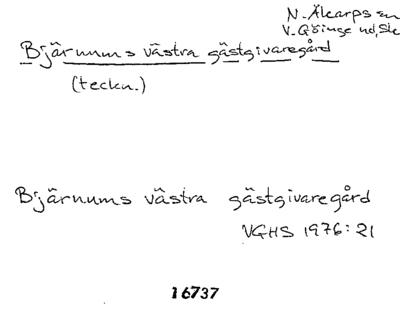 N. Åkarps sn
V. Göinge hd, Sk
Bjärnums västra gästgivaregård
(teckn.)
Bjärnums västra gästgivaregård
VGHS 1976:21
16737